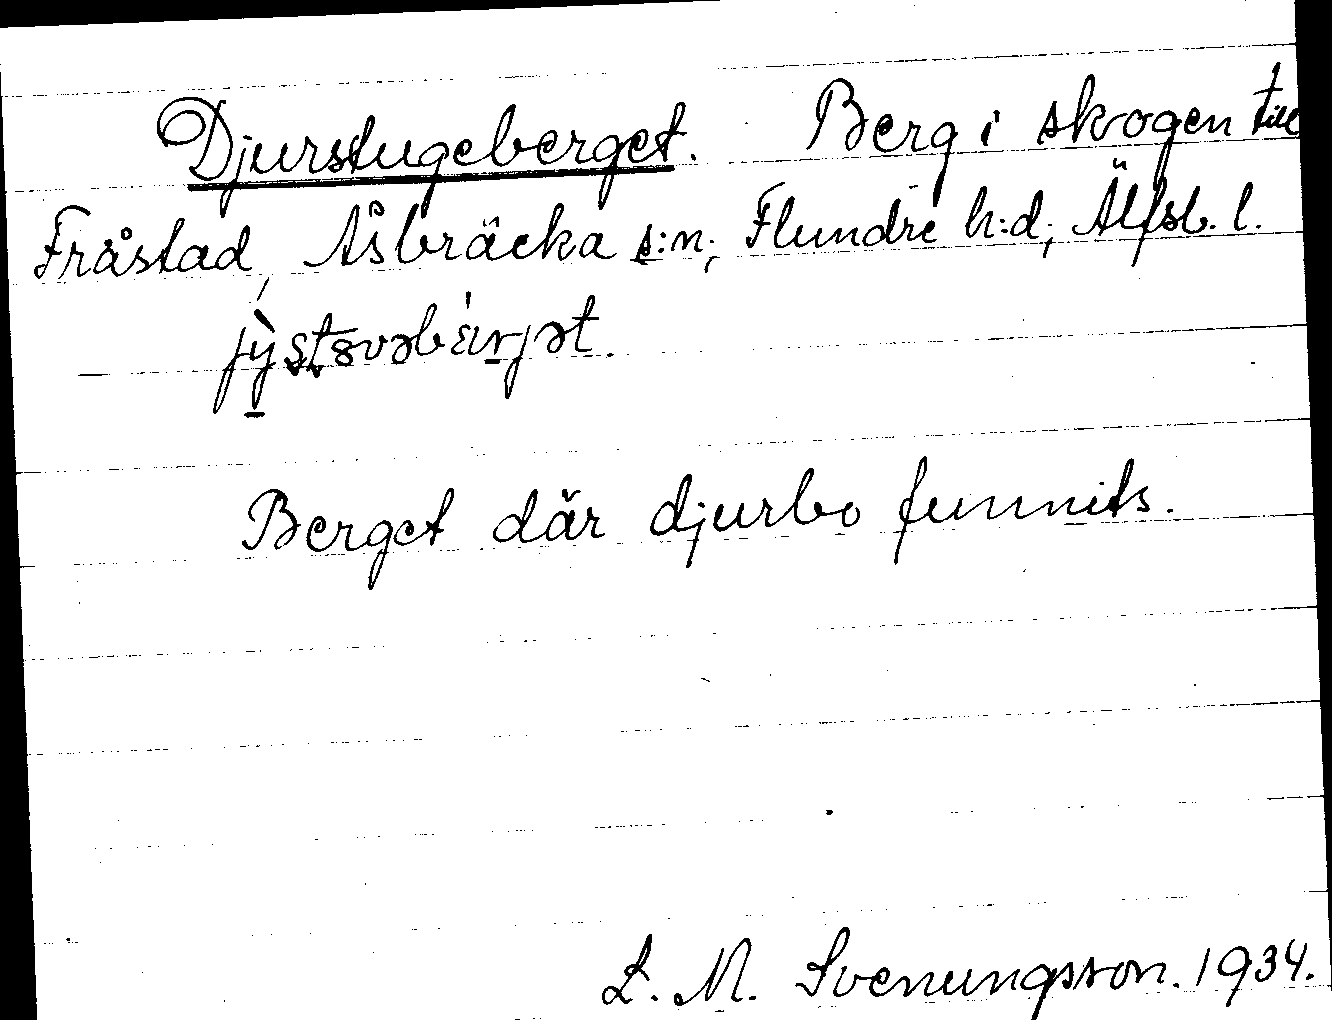 Djurstugeberget. Berg i skogen till
Fråstad, Åsbräcka s:n; Flundre h:d; Älfsb. l.
Berget där djurbo funnits.
L. M. Svenungsson. 1934.